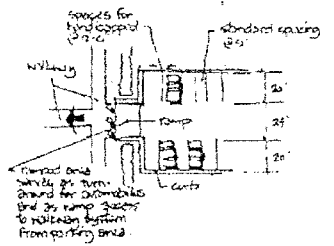 spaces for
handicapped
standard spacing
walkway
ramp
20'
20'
curb
ramped area
serves as turn
around for automobiles
and as ramp access
to walkway system
from parking area.